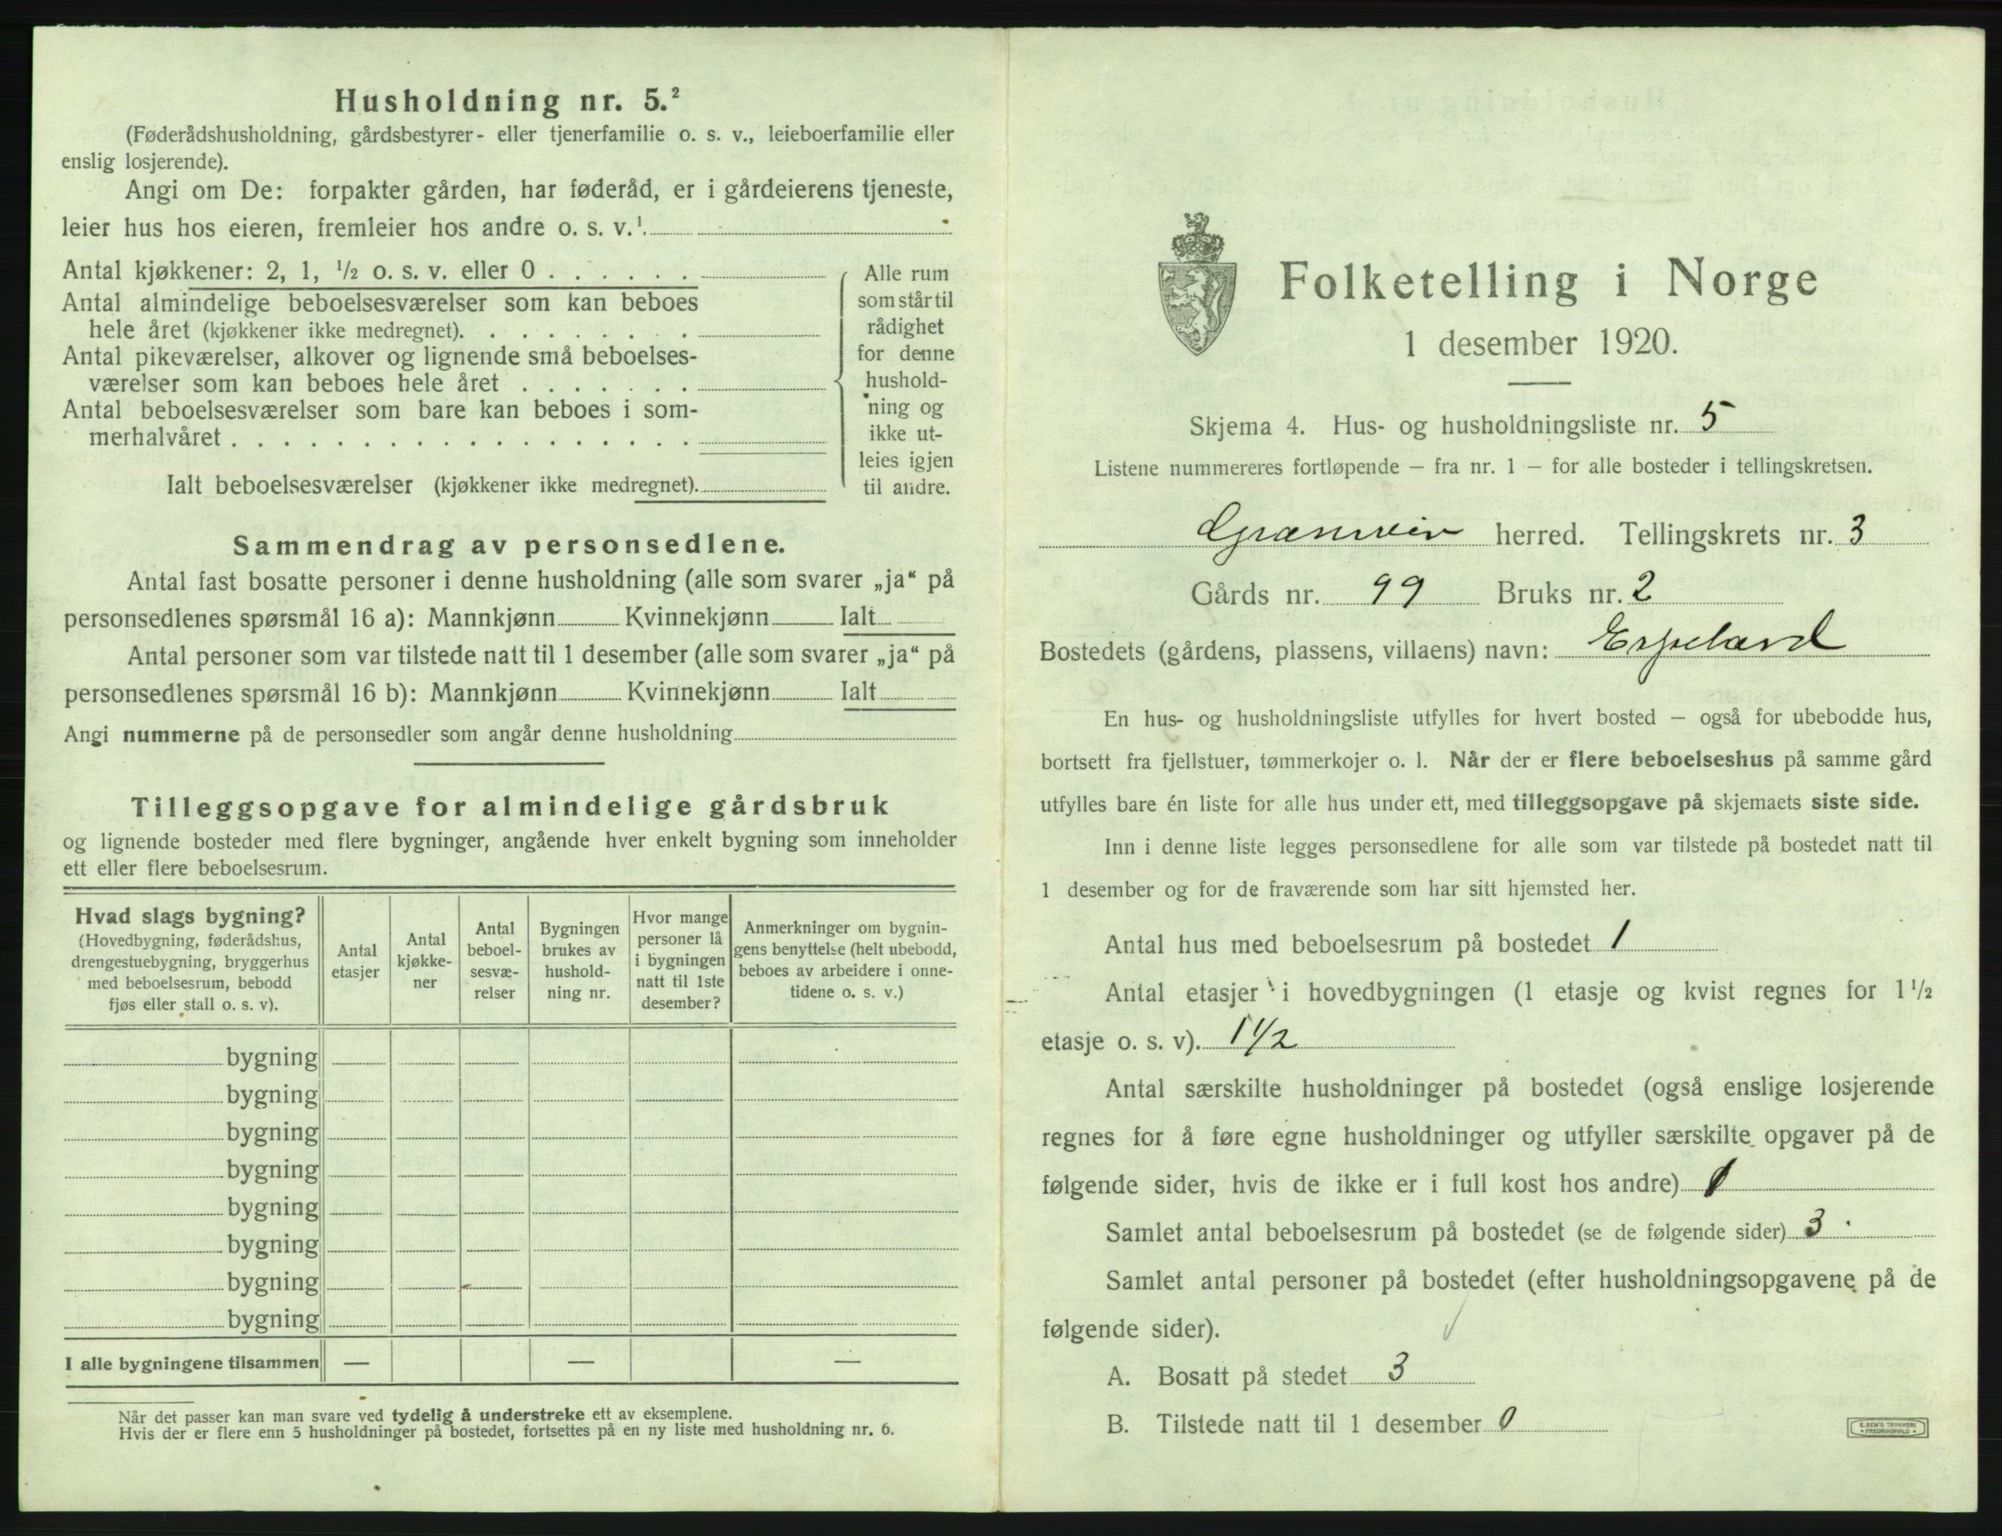 Husholdning nr. 5.²
(Føderådshusholdning, gårdsbestyrer- eller tjenerfamilie o. s. v., leieboerfamilie eller
enslig losjerende).
Angi om De: forpakter gården, har føderåd, er i gårdeierens tjeneste,
leier hus hos eieren, fremleier hos andre o. s. v.¹
Antal kjøkkener: 2, 1, ½ o. s. v. eller 0 . . . . . .
Antal almindelige beboelsesværelser som kan beboes
hele året (kjøkkener ikke medregnet). . . . . . . .
Antal pikeværelser, alkover og lignende små beboelses-
værelser som kan beboes hele året . . . . . . .
Antal beboelsesværelser som bare kan beboes i som-
merhalvåret . . . . . . . . . . . . . . . . . .
Ialt beboelsesværelser (kjøkkener ikke medregnet).
Alle rum
som står til
rådighet
for denne
hushold-
ning og
ikke ut-
leies igjen
til andre.
Sammendrag av personsedlene.
Antal fast bosatte personer i denne husholdning (alle som svarer „ja“ på
personsedlenes spørsmål 16 a): Mannkjønn Kvinnekjønn Ialt
Antal personer som var tilstede natt til 1 desember (alle som svarer „ja“ på
personsedlenes spørsmål 16 b): Mannkjønn Kvinnekjønn Ialt
Angi nummerne på de personsedler som angår denne husholdning
Tilleggsopgave for almindelige gårdsbruk
og lignende bosteder med flere bygninger, angående hver enkelt bygning som inneholder
ett eller flere beboelsesrum.
Hvad slags bygning?
(Hovedbygning, føderådshus,
drengestuebygning, bryggerhus
med beboelsesrum, bebodd
fjøs eller stall o. s. v).
Antal
etasjer
Antal
kjøkke-
ner
Antal
beboel-
sesvæ-
relser
Bygningen
brukes av
hushold-
ning nr.
Hvor mange
personer lå
i bygningen
natt til 1ste
desember?
Anmerkninger om bygnin-
gens benyttelse (helt ubebodd,
beboes av arbeidere i onne-
tidene o. s. v.)
bygning
bygning
bygning
bygning
bygning
bygning
bygning
bygning
I alle bygningene tilsammen — — —
Når det passer kan man svare ved tydelig å understreke ett av eksemplene.
Hvis der er flere enn 5 husholdninger på bostedet, fortsettes på en ny liste med husholdning nr. 6.
Folketelling i Norge
1 desember 1920.
Skjema 4. Hus- og husholdningsliste nr. 5
Listene nummereres fortløpende – fra nr. 1 – for alle bosteder i tellingskretsen.
Granvin herred. Tellingskrets nr. 3
Gårds nr. 99 Bruks nr. 2
Bostedets (gårdens, plassens, villaens) navn: Espeland
En hus- og husholdningsliste utfylles for hvert bosted – også for ubebodde hus,
bortsett fra fjellstuer, tømmerkojer o. l. Når der er flere beboelseshus på samme gård
utfylles bare én liste for alle hus under ett, med tilleggsopgave på skjemaets siste side.
Inn i denne liste legges personsedlene for alle som var tilstede på bostedet natt til
1 desember og for de fraværende som har sitt hjemsted her.
Antal hus med beboelsesrum på bostedet 1
Antal etasjer i hovedbygningen (1 etasje og kvist regnes for 1½
etasje o. s. v). 1½
Antal særskilte husholdninger på bostedet (også enslige losjerende
regnes for å føre egne husholdninger og utfyller særskilte opgaver på de
følgende sider, hvis de ikke er i full kost hos andre) 1
Samlet antal beboelsesrum på bostedet (se de følgende sider) 3
Samlet antal personer på bostedet (efter husholdningsopgavene på de
følgende sider).
A. Bosatt på stedet 3
B. Tilstede natt til 1 desember 0
E. SEM'S TRYKKERI
FREDRIKSHALD